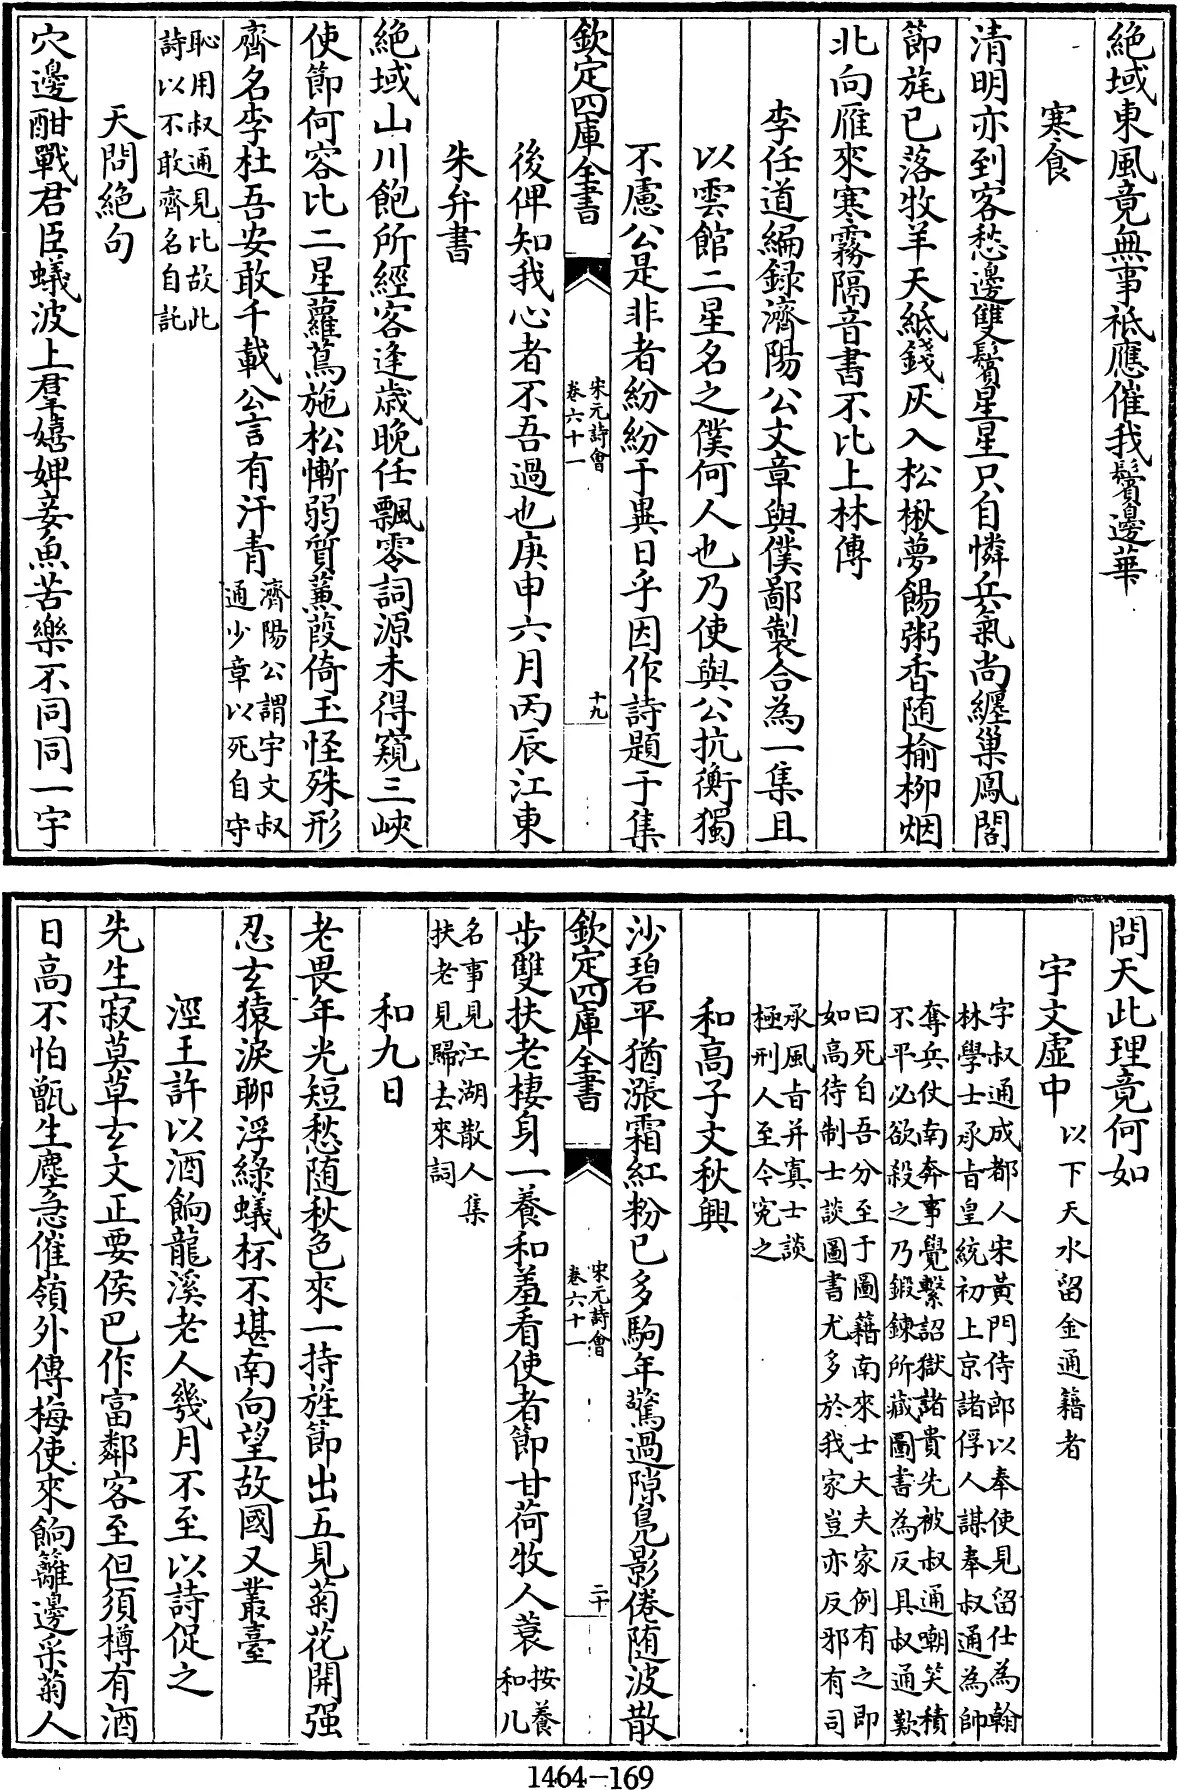 絶域東風竟無事祗應催我鬢邊華
寒食
清明亦到客愁邊雙鬢星星只自憐兵氣尚纏巢鳳閣
節旄已落牧羊天紙錢灰入松楸夢餳粥香随榆柳烟
北向雁來寒霧隔音書不比上林傳
李任道編録濟陽公文章與僕鄙製合為一集且
以雲館二星名之僕何人也乃使與公抗衡獨
不慮公是非者紛紛于異日乎因作詩題于集
欽定四庫全書
宋元詩會
卷六十一
十九
後俾知我心者不吾過也庚申六月丙辰江東
朱弁書
絶域山川飽所經客逢歳晚任飄零詞源未得窺三峽
使節何容比二星蘿蔦施松慚弱質蒹葭倚玉怪殊形
齊名李杜吾安敢千載公言有汗青
濟陽公謂宇文叔
通少章以死自守
恥用叔通見比故此
詩以不敢齊名自託
天問絶句
穴邊酣戰君臣蟻波上羣嬉婢妾魚苦樂不同同一宇
問天此理竟何如
宇文虚中
以下天水留金通籍者
字叔通成都人宋黃門侍郎以奉使見留仕為翰
林學士承旨皇統初上京諸俘人謀奉叔通為帥
奪兵仗南奔事覺繫詔獄諸貴先被叔通嘲笑積
不平必欲殺之乃鍛鍊所藏圖書為反具叔通歎
曰死自吾分至于圖籍南來士大夫家例有之即
如高待制士談圖書尤多於我家豈亦反邪有司
承風旨并寘士談
極刑人至今寃之
和高子文秋興
沙碧平猶漲霜紅粉已多駒年驚過隙鳧影倦随波散
欽定四庫全書
宋元詩會
卷六十一
二十
步雙扶老棲身一養和羞看使者節甘荷牧人蓑
按養
和几
名事見江湖散人集
扶老見歸去來詞
和九日
老畏年光短愁随秋色來一持旌節出五見菊花開强
忍玄猿淚聊浮綠蟻杯不堪南向望故國又叢臺
涇王許以酒餉龍溪老人幾月不至以詩促之
先生寂莫草玄文正要侯巴作富鄰客至但須樽有酒
日高不怕甑生塵急催嶺外傳梅使來餉籬邊采菊人
1464-169